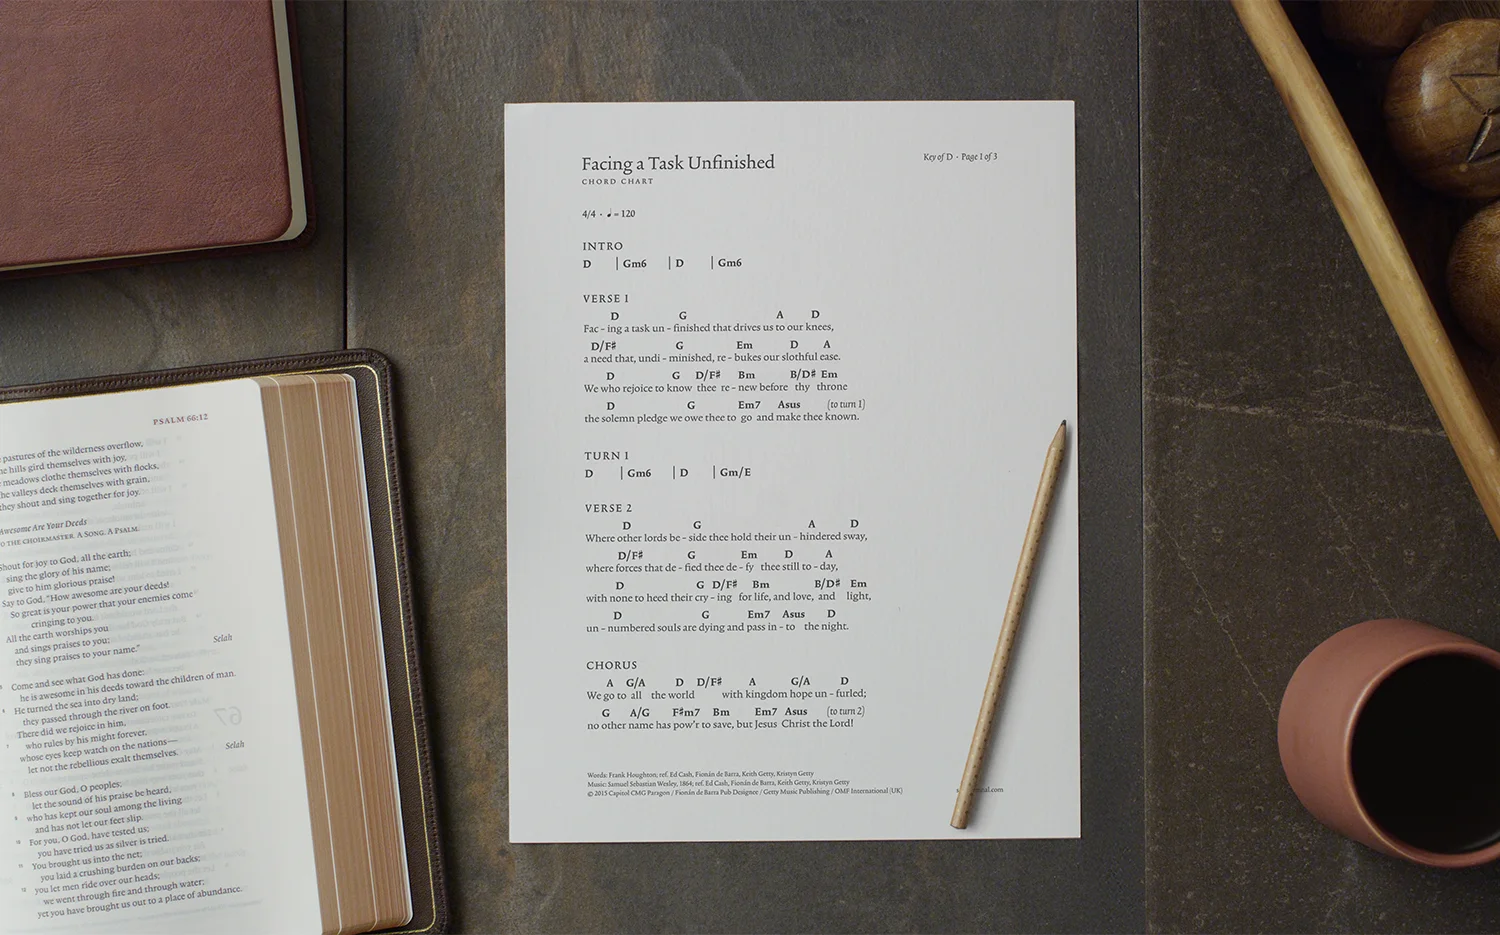 Facing a Task Unfinished
CHORD CHART
Key of D · Page 1 of 3
4/4 · ♩ = 120
INTRO
D | Gm6 | D | Gm6
VERSE 1
D G A D
Fac - ing a task un - finished that drives us to our knees,
D/F# G Em D A
a need that, undi - minished, re - bukes our slothful ease.
D G D/F# Bm B/D# Em
We who rejoice to know thee re - new before thy throne
D G Em7 Asus (to turn 1)
the solemn pledge we owe thee to go and make thee known.
TURN 1
D | Gm6 | D | Gm/E
VERSE 2
D G A D
Where other lords be - side thee hold their un - hindered sway,
D/F# G Em D A
where forces that de - fied thee de - fy thee still to - day,
D G D/F# Bm B/D# Em
with none to heed their cry - ing for life, and love, and light,
D G Em7 Asus D
un - numbered souls are dying and pass in - to the night.
CHORUS
A G/A D D/F# A G/A D
We go to all the world with kingdom hope un - furled;
G A/G F#m7 Bm Em7 Asus (to turn 2)
no other name has pow'r to save, but Jesus Christ the Lord!
Words: Frank Houghton; ref. Ed Cash, Fionán de Barra, Keith Getty, Kristyn Getty
Music: Samuel Sebastian Wesley, 1864; ref. Ed Cash, Fionán de Barra, Keith Getty, Kristyn Getty
© 2015 Capitol CMG Paragon / Fionán de Barra Pub Designee / Getty Music Publishing / OMF International (UK)
PSALM 66:12
pastures of the wilderness overflow,
hills gird themselves with joy,
meadows clothe themselves with flocks,
valleys deck themselves with grain,
they shout and sing together for joy.
Awesome Are Your Deeds
THE CHOIRMASTER. A SONG. A PSALM.
Shout for joy to God, all the earth;
sing the glory of his name;
give to him glorious praise!
Say to God, "How awesome are your deeds!
So great is your power that your enemies come
cringing to you.
All the earth worships you
and sings praises to you;
they sing praises to your name." Selah
Come and see what God has done:
he is awesome in his deeds toward the children of man.
He turned the sea into dry land;
they passed through the river on foot.
There did we rejoice in him,
who rules by his might forever,
whose eyes keep watch on the nations—
let not the rebellious exalt themselves. Selah
Bless our God, O peoples;
let the sound of his praise be heard,
who has kept our soul among the living
and has not let our feet slip.
For you, O God, have tested us;
you have tried us as silver is tried.
You brought us into the net;
you laid a crushing burden on our backs;
you let men ride over our heads;
we went through fire and through water;
yet you have brought us out to a place of abundance.